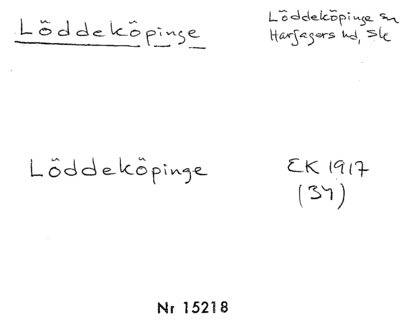 Löddeköpinge
Löddeköpinge sn
Harjagers hd, Sk
Löddeköpinge
EK 1917
(34)
Nr 15218